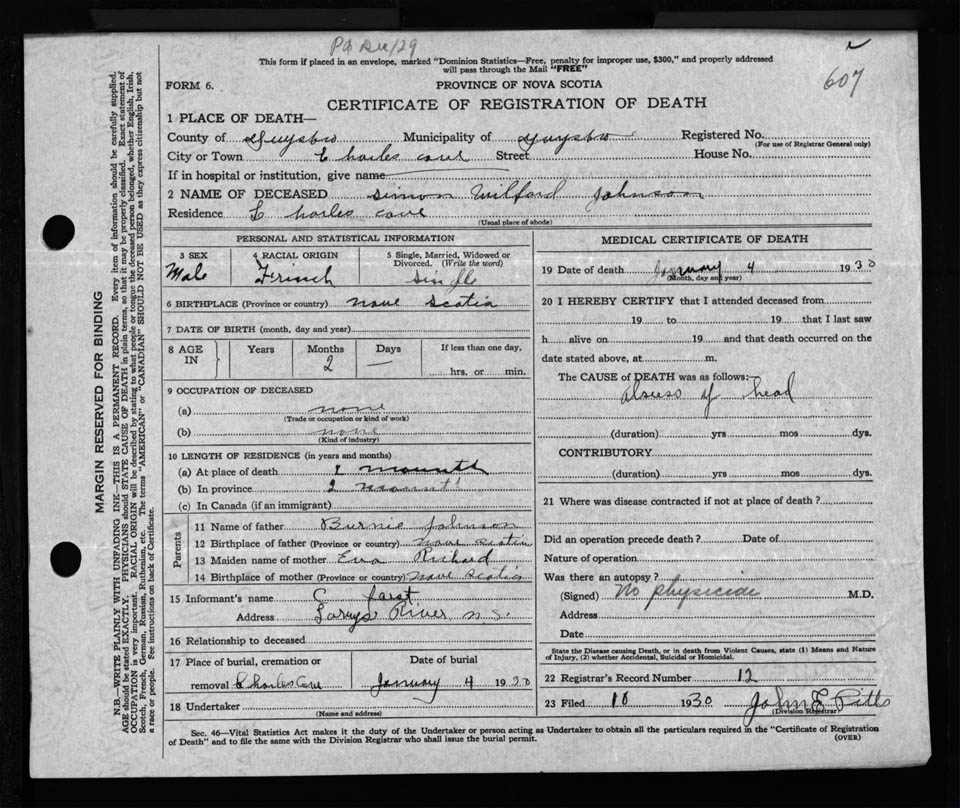 Pd Dec/29
607
This form if placed in an envelope, marked "Dominion Statistics—Free, penalty for improper use, $300," and properly addressed
will pass through the Mail "FREE"
FORM 6.
PROVINCE OF NOVA SCOTIA
CERTIFICATE OF REGISTRATION OF DEATH
1 PLACE OF DEATH—
County of Guysbro Municipality of Guysbro Registered No.
(For use of Registrar General only)
City or Town Charles cove Street House No.
If in hospital or institution, give name
2 NAME OF DECEASED Simon Wilford Johnson
Residence Charles cove
(Usual place of abode)
PERSONAL AND STATISTICAL INFORMATION
3 SEX
Male
4 RACIAL ORIGIN
French
5 Single, Married, Widowed or
Divorced. (Write the word)
Single
6 BIRTHPLACE (Province or country) Nova Scotia
7 DATE OF BIRTH (month, day and year)
8 AGE IN Years Months Days If less than one day,
2 — hrs. or min.
9 OCCUPATION OF DECEASED
(a) none
(Trade or occupation or kind of work)
(b) none
(Kind of industry)
10 LENGTH OF RESIDENCE (in years and months)
(a) At place of death 2 mounth
(b) In province 2 mounth
(c) In Canada (if an immigrant)
Parents
11 Name of father Burnie Johnson
12 Birthplace of father (Province or country) Nova Scotia
13 Maiden name of mother Eva Richard
14 Birthplace of mother (Province or country) Nova Scotia
15 Informant's name C
Address Larrys River N.S.
16 Relationship to deceased
17 Place of burial, cremation or Date of burial
removal Charles Cove January 4 1930
18 Undertaker
(Name and address)
MEDICAL CERTIFICATE OF DEATH
19 Date of death January 4 1930
(Month, day and year)
20 I HEREBY CERTIFY that I attended deceased from
19 to 19 that I last saw
h alive on 19 and that death occurred on the
date stated above, at m.
The CAUSE of DEATH was as follows:
abscess of head
(duration) yrs mos dys.
CONTRIBUTORY
(duration) yrs mos dys.
21 Where was disease contracted if not at place of death?
Did an operation precede death? Date of
Nature of operation
Was there an autopsy?
(Signed) No physician M.D.
Address
Date
State the Disease causing Death, or in death from Violent Causes, state (1) Means and Nature
of Injury, (2) whether Accidental, Suicidal or Homicidal.
22 Registrar's Record Number 12
23 Filed 10 1930 John E Pitts
(Division Registrar)
Sec. 46—Vital Statistics Act makes it the duty of the Undertaker or person acting as Undertaker to obtain all the particulars required in the "Certificate of Registration
of Death" and to file the same with the Division Registrar who shall issue the burial permit.
(OVER)
MARGIN RESERVED FOR BINDING
N.B.—WRITE PLAINLY WITH UNFADING INK—THIS IS A PERMANENT RECORD. Every item of information should be carefully supplied.
AGE should be stated EXACTLY. PHYSICIANS should STATE CAUSE OF DEATH in plain terms, so that it may be properly classified. Exact statement of
OCCUPATION is very important. RACIAL ORIGIN will be described by stating to what people or tongue the deceased person belonged, whether English, Irish,
Scotch, French, German, Russian, Ruthenian, etc. The terms "AMERICAN" or "CANADIAN" SHOULD NOT BE USED as they express citizenship but not
a race or people. See instructions on back of Certificate.